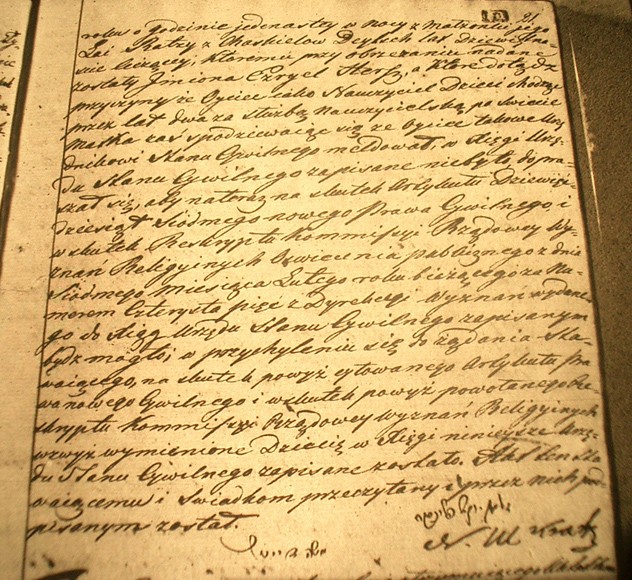 21.
roku o godzinie jedenastey w nocy z Małżonki jego
Lai Ratzy z Chaskielow lat dziewiętna-
ście liczącey, któremu przy obrzezaniu nadane
zostały Jmiona Herss, a które dotąd z
przyczyny że Oyciec jako Nauczyciel Dzieci chodząc
przez lat dwa za służbą Nauczycielską po świecie
Matka zaś spodziewaiąc się że Oyciec takowe Urzę-
dnikowi Stanu Cywilnego meldował, w Księgi Urzę-
du Stanu Cywilnego zapisane niebyło, doma-
gał się, aby natoraz na skutek Artykułu Dziewięć-
dziesiąt Siódmego nowego Prawa Cywilnego i
w skutek Reskryptu Kommissyi Rządowey Wy-
znań Religiynych Oświecenia publicznego z dnia
Siódmego Miesiąca Lutego roku bieżącego za Nu-
morem Czterysta pięć z Wyznań wydane-
go do Xiąg Urzędu Stanu Cywilnego zapisanym
bydz mogło; w przychylaniu się do żądania Sta-
waiącego, na skutek powyż cytowanego Artykułu Pra-
wa nowego Cywilnego i w skutek powyż powołanego Re-
skryptu Kommissyi Rządowey Wyznań Religiynych
wzwyż wymienione Dziecię w Księgi ninieysze Urzę-
du Stanu Cywilnego zapisane zostało. Akt ten Sta-
waiącemu i Świadkom przeczytany i przez nich pod-
pisanym został.
N. M. Kratz